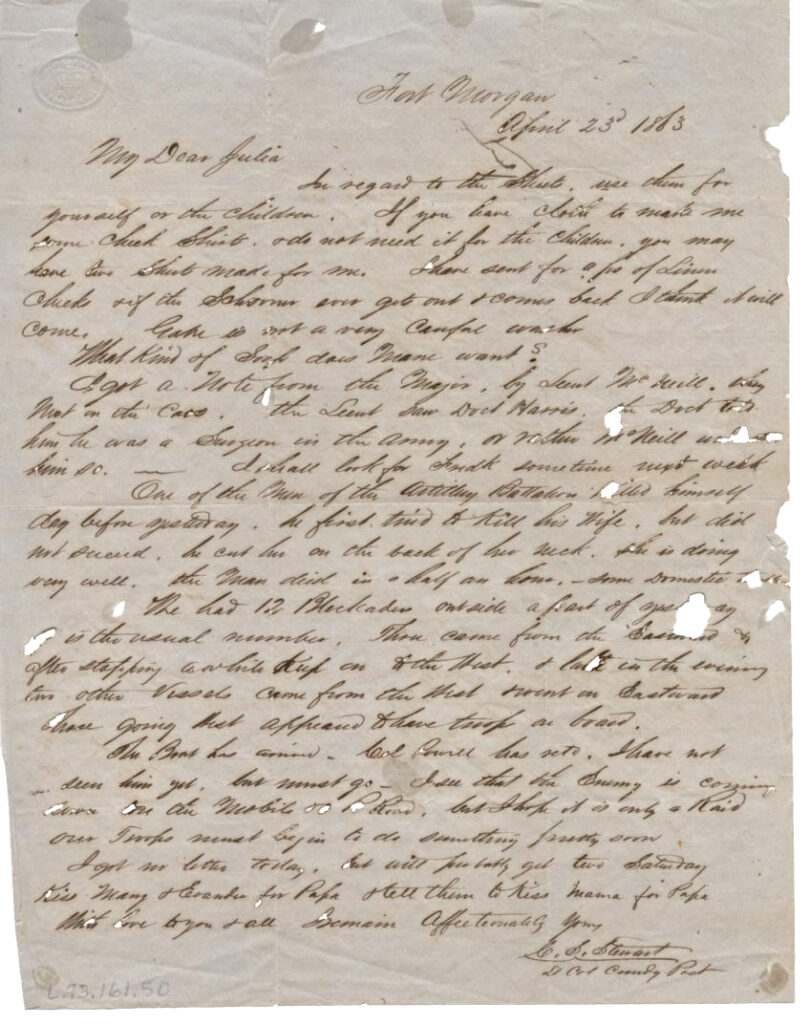 Fort Morgan
April 23d 1863
My Dear Julia
In regard to the Shirts, use them for
yourself or the children. If you have cloth to make me
some Check Shirts, & do not need it for the Children, you may
have two Shirts made for me. I have sent for a ps of Linen
Checks & if the Schooner ever gets out & comes back I think it will
come. is not a very careful washer
What kind of does want?
I got a Note from the Major, by Lieut McNeill, they
Met on the Cars. the Lieut saw Doct Harris, the Doct told
him he was a Surgeon in the Army, or rather McNeill
him so. — I shall look for Fredk sometime next week
One of the Men of the Artillery Battalion killed himself
day before yesterday. he first tried to Kill his Wife, but did
not succeed, he cut her on the back of her neck. She is doing
very well. the Man died in a half an hour. — some Domestic
We had 12 Blockaders outside a part of yesterday
is the usual number. Three came from the Eastward &
after stopping awhile Kept on to the West, & late in the evening
two other Vessels came from the West & went on Eastward
those going West appeared to have troops on board.
The Boat has arrived — Col Powell has retd. I have not
seen him yet, but must go — I see that the Enemy is coming
down on the Mobile & Road, but I hope it is only a Raid
our Troops must begin to do something pretty soon
I got no letter today, but will probably get two Saturday
Kiss Mary & Evander for Papa & tell them to Kiss Mama for Papa
With love to you & all I remain Affectionately Yours
C. S. Stewart
Lt Col Comdg Post
L.73.161.50